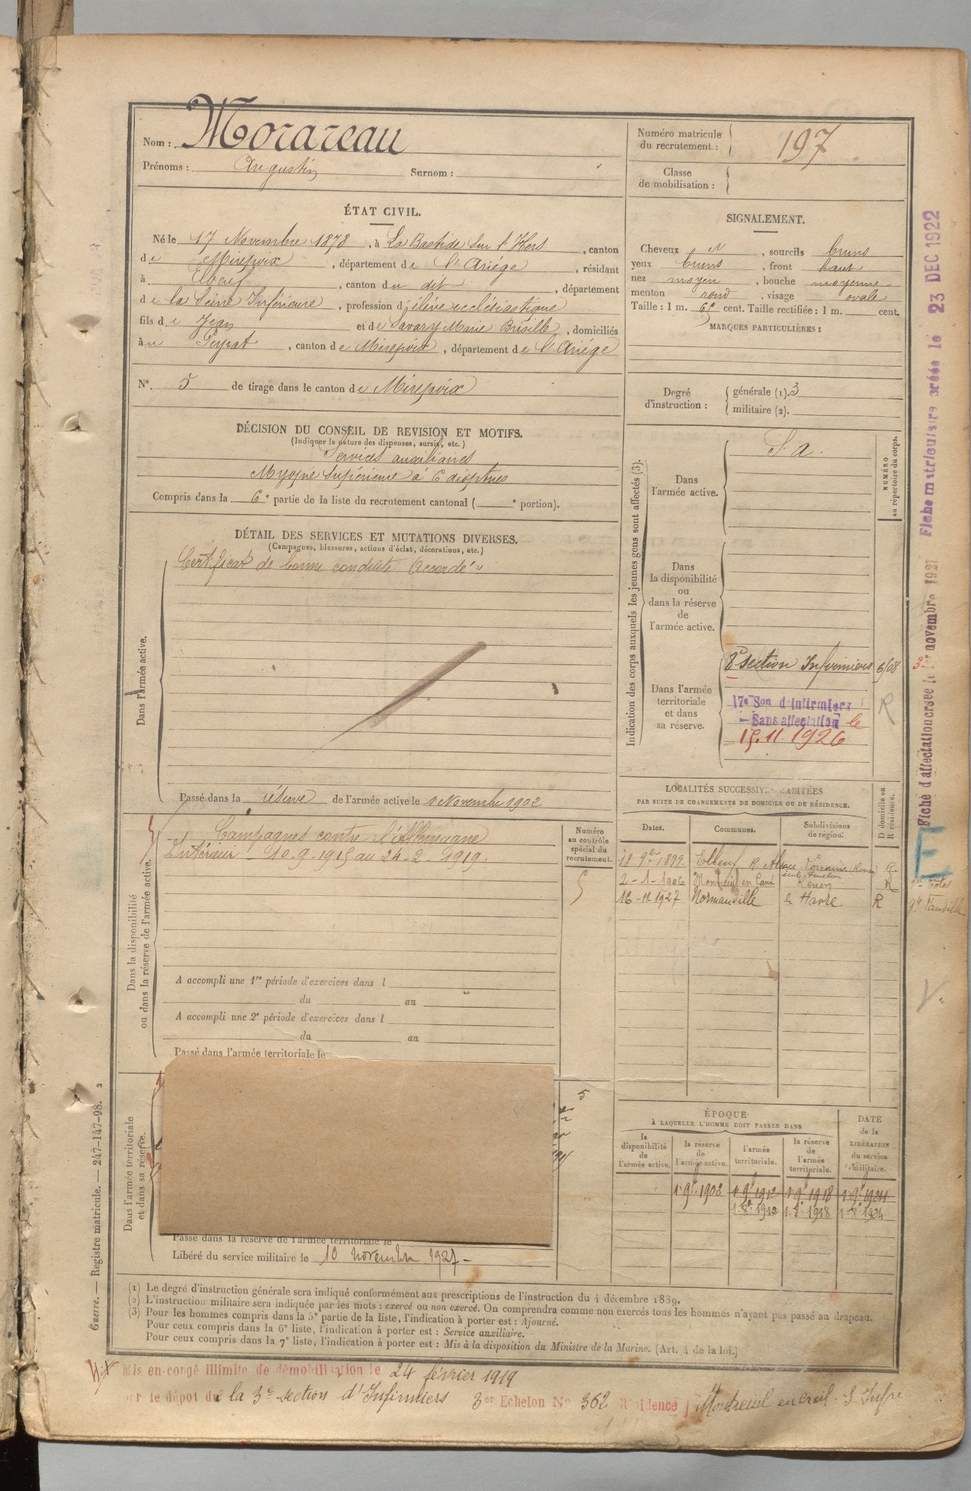 Nom : Morareau
Prénoms : Augustin Surnom :
Numéro matricule du recrutement : 197
Classe de mobilisation :
ÉTAT CIVIL.
Né le 17 Novembre 1878, à La Bastide sur l'Hers, canton
de Mirepoix, département de l'Ariége, résidant
à Elbeuf, canton du dit, département
de la Seine Inférieure, profession d'élève ecclésiastique
fils de Jean et de Savary Marie, domiciliés
à Peyrat, canton de Mirepoix, département de l'Ariége
N°. 5 de tirage dans le canton de Mirepoix
SIGNALEMENT.
Cheveux, sourcils bruns
yeux bruns, front haut
nez moyen, bouche moyenne
menton rond, visage ovale
Taille : 1 m. cent. Taille rectifiée : 1 m. cent.
MARQUES PARTICULIÈRES :
Degré d'instruction : générale (1). 3
militaire (2).
DÉCISION DU CONSEIL DE REVISION ET MOTIFS.
(Indiquer la nature des dispenses, sursis, etc.)
Services auxiliaires
Myopie supérieure à 6 dioptries
Compris dans la 6e partie de la liste du recrutement cantonal ( e portion).
DÉTAIL DES SERVICES ET MUTATIONS DIVERSES.
(Campagnes, blessures, actions d'éclat, décorations, etc.)
Dans l'armée active.
Certificat de bonne conduite Accordé
Passé dans la réserve de l'armée active le 1 Novembre 1902
Indication des corps auxquels les jeunes gens sont affectés (3).
NUMÉRO au répertoire du corps.
Dans l'armée active. S. a.
Dans la disponibilité ou dans la réserve de l'armée active.
Dans l'armée territoriale et dans sa réserve.
3e section Infirmiers 6/08
17e Son d'Infirmiers
— Sans affectation le
15.11.1926
R
Fiche matriculaire créée le 23 DEC 1922
Fiche d'affectation créée le 1er novembre 1921
Dans la disponibilité ou dans la réserve de l'armée active.
Campagnes contre l'Allemagne
Intérieur - 10.9.1915 au 24.2.1919.
Numéro au contrôle spécial du recrutement.
5
A accompli une 1re période d'exercices dans l
du au
A accompli une 2e période d'exercices dans l
du au
Passé dans l'armée territoriale le
LOCALITÉS SUCCESSIVES HABITÉES
PAR SUITE DE CHANGEMENTS DE DOMICILE OU DE RÉSIDENCE.
Dates. Communes. Subdivisions de région. D domicile ou R résidence.
Elbeuf R. Alsace Lorraine
2-1-1906 Rouen R
16-11 1927 Normanville le Havre R
E
Dans l'armée territoriale et dans sa réserve.
5
Passé dans la réserve de l'armée territoriale le
Libéré du service militaire le 10 novembre 1927 -
ÉPOQUE À LAQUELLE L'HOMME DOIT PASSER DANS
la disponibilité de l'armée active.
la réserve de l'armée active.
l'armée territoriale.
la réserve de l'armée territoriale.
DATE de la LIBÉRATION du service militaire.
Guerre. — Registre matricule. — 247-147-98.
(1) Le degré d'instruction générale sera indiqué conformément aux prescriptions de l'instruction du 4 décembre 1889.
(2) L'instruction militaire sera indiquée par les mots : exercé ou non exercé. On comprendra comme non exercés tous les hommes n'ayant pas passé au drapeau.
(3) Pour les hommes compris dans la 5e partie de la liste, l'indication à porter est : Ajourné.
Pour ceux compris dans la 6e liste, l'indication à porter est : Service auxiliaire.
Pour ceux compris dans la 7e liste, l'indication à porter est : Mis à la disposition du Ministre de la Marine. (Art. 4 de la loi.)
Mis en congé illimité de démobilisation le 24 février 1919
le dépot de la 3e section d'Infirmiers 3er Echelon No 362 Résidence